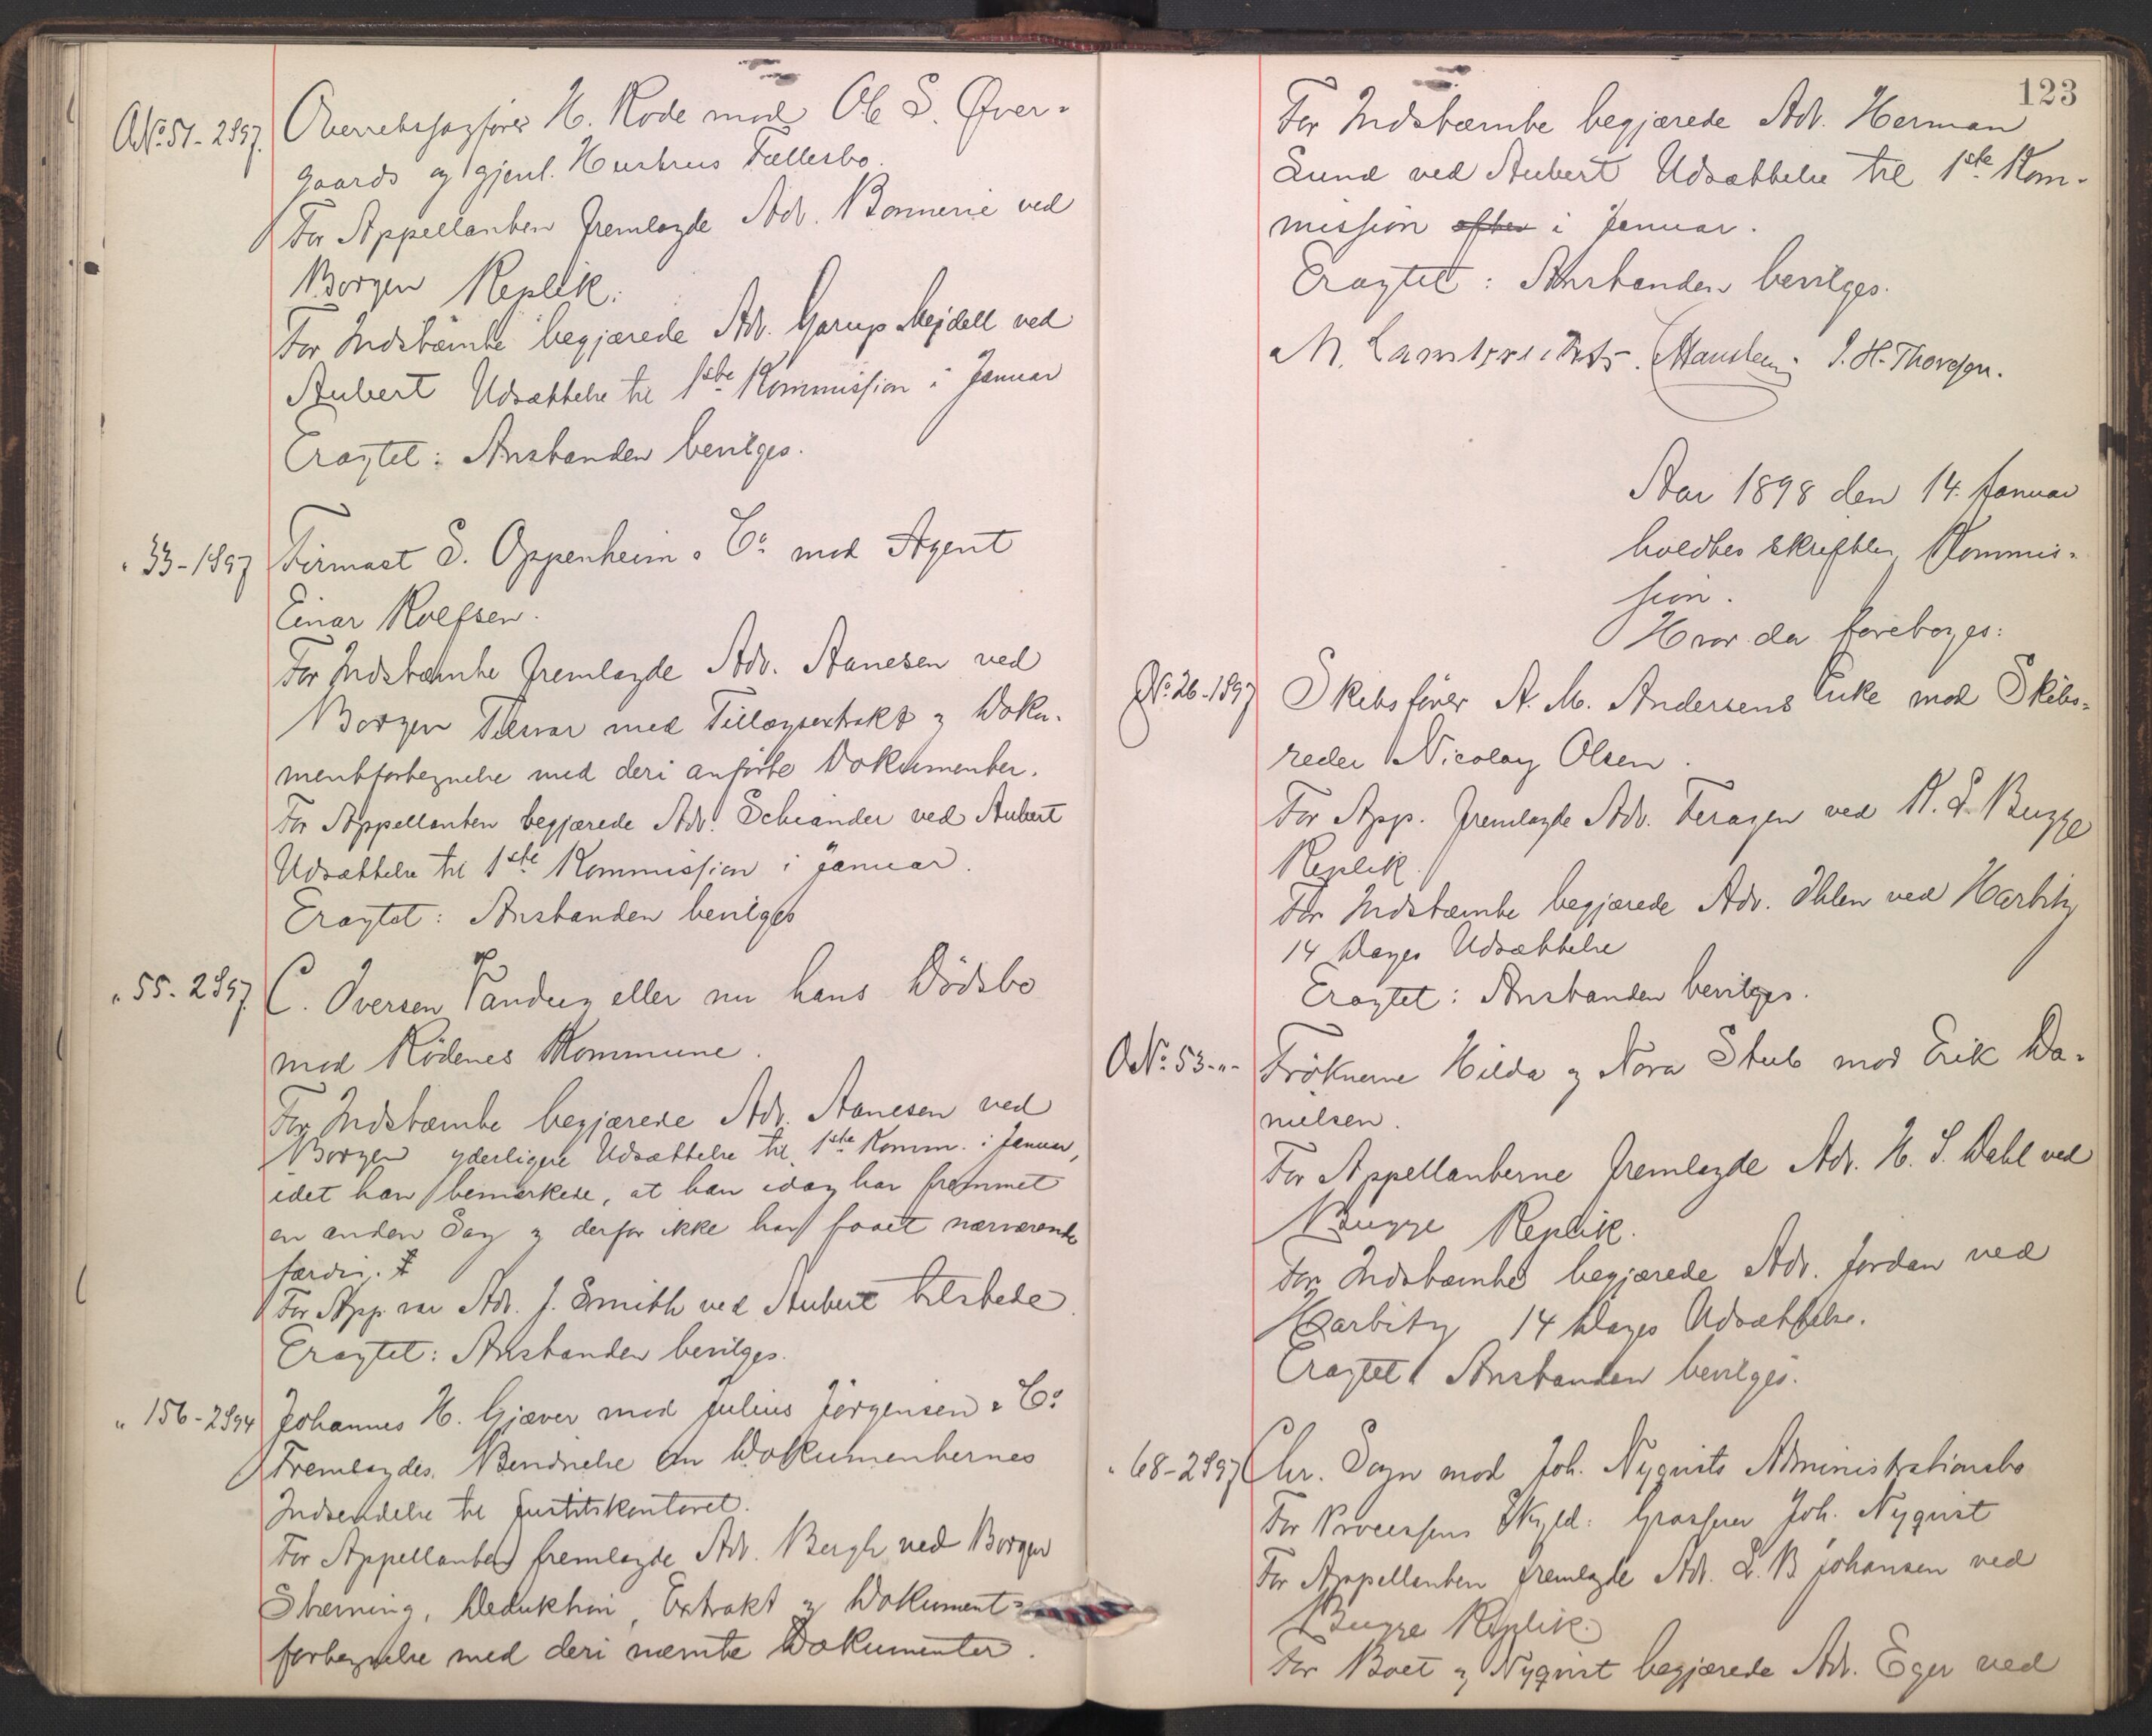 O.N.o 51-2/1897. Overretssagfører H. Rode mod Ole S. Øver-
gaards og gjenl. Hustrus Fællesbo.
For Appellanten fremlagde Adv. Bonnevie ved
Borgen Replik.
For Indstævnte begjærede Adv. Garup Mejdell ved
Aubert Udsættelse til 1ste Kommission i Januar
Eragtet: Anstanden bevilges.
" 33-1/1897 Firmaet S. Oppenheim & Co. mod Agent
Einar Roefsen.
For Indstævnte fremlagde Adv. Aanesen ved
Borgen Tilsvar med Tillægsextrakt og Doku-
mentfortegnelse med deri anførte Dokumenter.
For Appellanten begjærede Adv. Schiander ved Aubert
Udsættelse til 1ste Kommission i Januar.
Eragtet: Anstanden bevilges
" 55-2/1897. C. Iversen Tandberg eller nu hans Dödsbo
mod Rödenes Kommune.
For Indstævnte begjærede Adv. Aanesen ved
Borgen yderligere Udsættelse til 1ste Komm. i Januar,
idet han bemærkede, at han idag har fremmet
en anden Sag og derfor ikke har faaet nærværende
færdig.
For App. var Adv. J. Smith ved Aubert tilstede.
Eragtet: Anstanden bevilges.
" 156-2/1894 Johannes H. Gjæver mod Julius Jörgensen & Co.
Fremlagdes Bevidnelse om Dokumenternes
Indsendelse til Justitskontoret.
For Appellanten fremlagde Adv. Bergh ved Borgen
Stævning, Deduktion, Extrakt og Dokument-
fortegnelse med deri nævnte Dokumenter.
123
For Indstævnte begjærede Adv. Herman
Lund ved Aubert Udsættelse til 1ste Kom-
mission efter i Januar.
Eragtet: Anstanden bevilges.
M. Lambrechts. Hansteen. J. H. Thoresen.
Aar 1898 den 14. Januar
holdtes skriftlig Kommis-
sion.
Hvor da foretoges:
N.o 26-1/1897 Skibsfører A. M. Andersens Enke mod Skibs-
reder Nicolay Olsen.
For App. fremlagde Adv. Feragen ved K. L. Bugge
Replik.
For Indstævnte begjærede Adv. Ihlen ved Harbitz
14 Dages Udsættelse
Eragtet: Anstanden bevilges.
O.N.o 53-"- Frøknerne Hilda og Nora Stub mod Erik Da-
nielsen.
For Appellanterne fremlagde Adv. H. S. Dahl ved
Bugge Replik.
For Indstævnte begjærede Adv. Jordan ved
Harbitz 14 Dages Udsættelse.
Eragtet: Anstanden bevilges.
" 68-2/1897 Chr. Sogn mod Joh. Nyquists Administrationsbo
For Processens Skyld: Grosserer Joh. Nyquist
For Appellanten fremlagde Adv. L. B. Johansen ved
Bugge Replik.
For Boet og Nyquist begjærede Adv. Eger ved